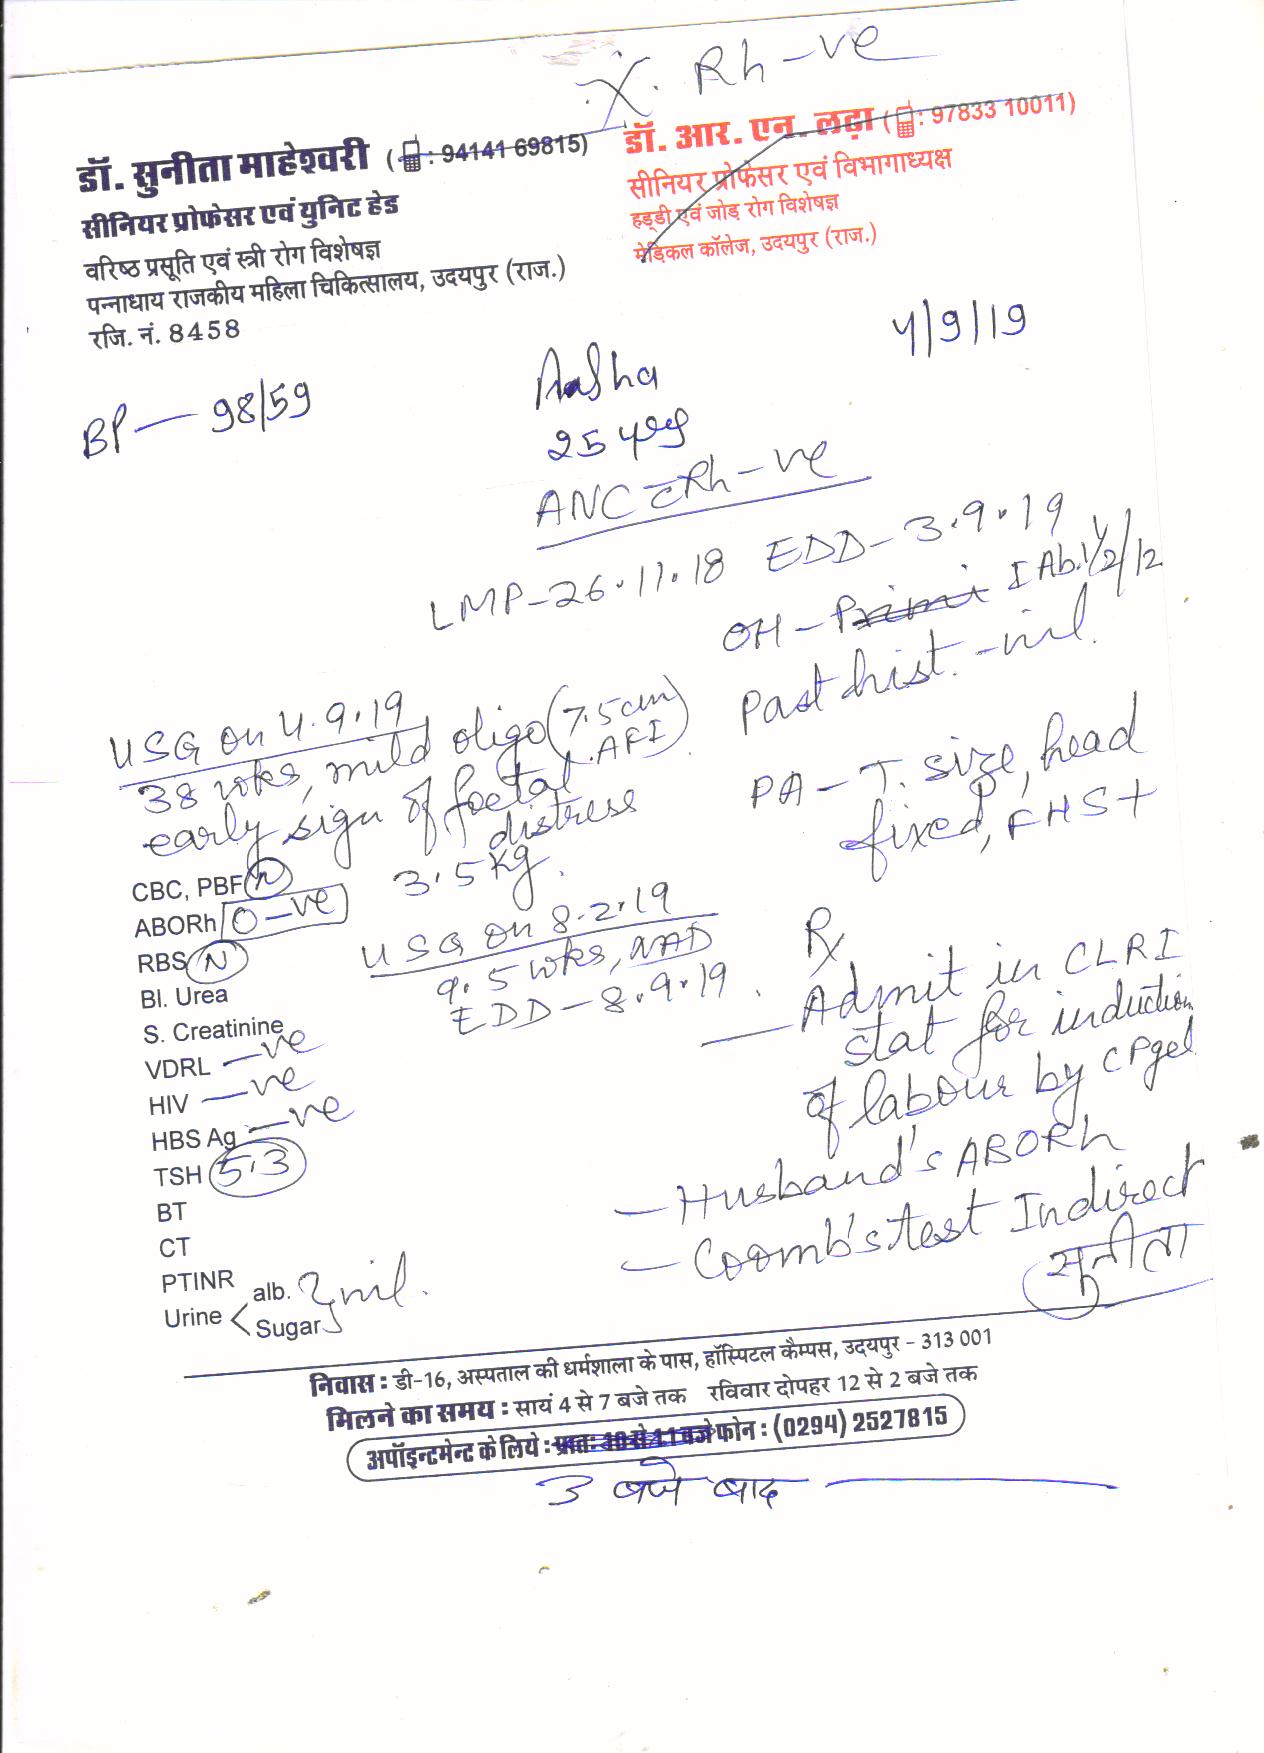 Rh -ve
डॉ. सुनीता माहेश्वरी ( : 94141 69815)
सीनियर प्रोफेसर एवं युनिट हेड
वरिष्ठ प्रसूति एवं स्त्री रोग विशेषज्ञ
पन्नाधाय राजकीय महिला चिकित्सालय, उदयपुर (राज.)
रजि. नं. 8458
डॉ. आर. एन. लढ़ा ( : 97833 10011)
सीनियर प्रोफेसर एवं विभागाध्यक्ष
हड्डी एवं जोड़ रोग विशेषज्ञ
मेडिकल कॉलेज, उदयपुर (राज.)
4/9/19
BP — 98/59
Aasha
25 yrs
ANC c Rh -ve
LMP-26.11.18 EDD- 3.9.19
OH - Primi I Ab. 1½/12
Past hist. - nil.
PA - T. size, head
fixed, FHS+
USG on 4.9.19
38 wks, mild oligo (7.5cm AFI)
early sign of foetal
distress
3.5 kg.
CBC, PBF N
ABORh O -ve
RBS N
Bl. Urea
S. Creatinine
VDRL -ve
HIV -ve
HBS Ag -ve
TSH 5.3
BT
CT
PTINR
Urine < alb. nil.
Sugar
USG on 8.2.19
9.5 wks, NAD
EDD - 8.9.19.
Rx
— Admit in CLRI
stat for induction
of labour by CPgel
— Husband's ABORh
— Coomb's test Indirect
सुनीता
निवास : डी-16, अस्पताल की धर्मशाला के पास, हॉस्पिटल कैम्पस, उदयपुर - 313 001
मिलने का समय : सायं 4 से 7 बजे तक रविवार दोपहर 12 से 2 बजे तक
अपॉइन्टमेन्ट के लिये : प्रातः 10 से 11 बजे फोन : (0294) 2527815
3 बजे बाद